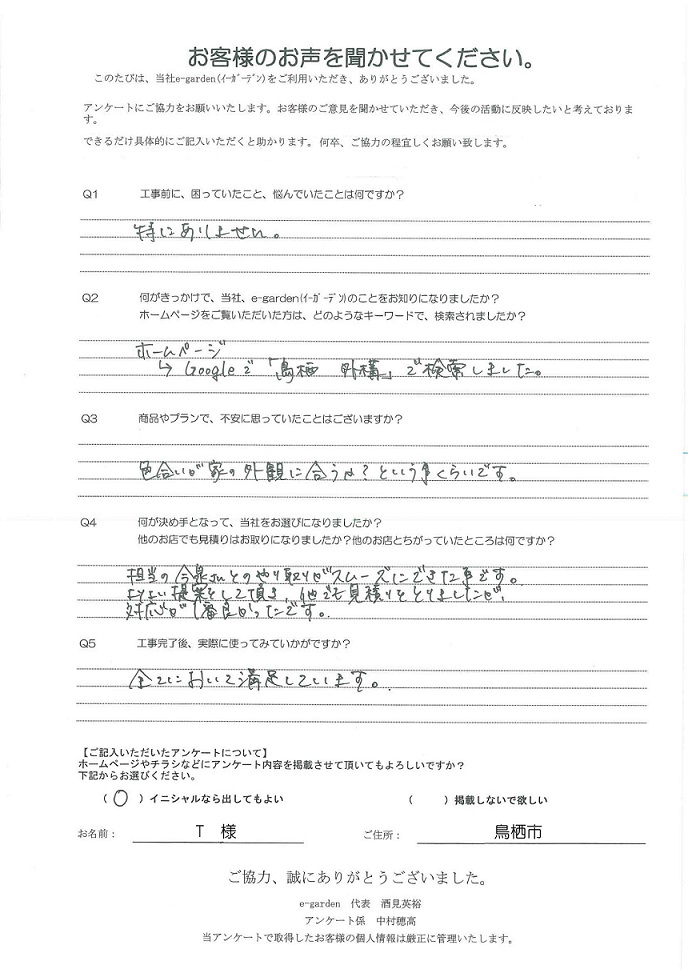 お客様のお声を聞かせてください。
このたびは、当社e-garden(ｲｰｶﾞｰﾃﾞﾝ)をご利用いただき、ありがとうございました。
アンケートにご協力をお願いいたします。お客様のご意見を聞かせていただき、今後の活動に反映したいと考えておりま
す。
できるだけ具体的にご記入いただくと助かります。 何卒、ご協力の程宜しくお願い致します。
Q1 工事前に、困っていたこと、悩んでいたことは何ですか？
特にありません。
Q2 何がきっかけで、当社、e-garden(ｲｰｶﾞｰﾃﾞﾝ)のことをお知りになりましたか？
ホームページをご覧いただいた方は、どのようなキーワードで、検索されましたか？
ホームページ
↳ Googleで「鳥栖 外構」で検索しました。
Q3 商品やプランで、不安に思っていたことはございますか？
色合いが家の外観に合うか？という事くらいです。
Q4 何が決め手となって、当社をお選びになりましたか？
他のお店でも見積りはお取りになりましたか？他のお店とちがっていたところは何ですか？
担当の今泉さんとのやり取りがスムーズにできた事です。
よりよい提案をして頂き、他でも見積りをとりましたが、
対応が1番良かったです。
Q5 工事完了後、実際に使ってみていかがですか？
全てにおいて満足しています。
【ご記入いただいたアンケートについて】
ホームページやチラシなどにアンケート内容を掲載させて頂いてもよろしいですか？
下記からお選びください。
（ ○ ）イニシャルなら出してもよい （ ）掲載しないで欲しい
お名前： T 様 ご住所： 鳥栖市
ご協力、誠にありがとうございました。
e-garden 代表 酒見英裕
アンケート係 中村穂高
当アンケートで取得したお客様の個人情報は厳正に管理いたします。